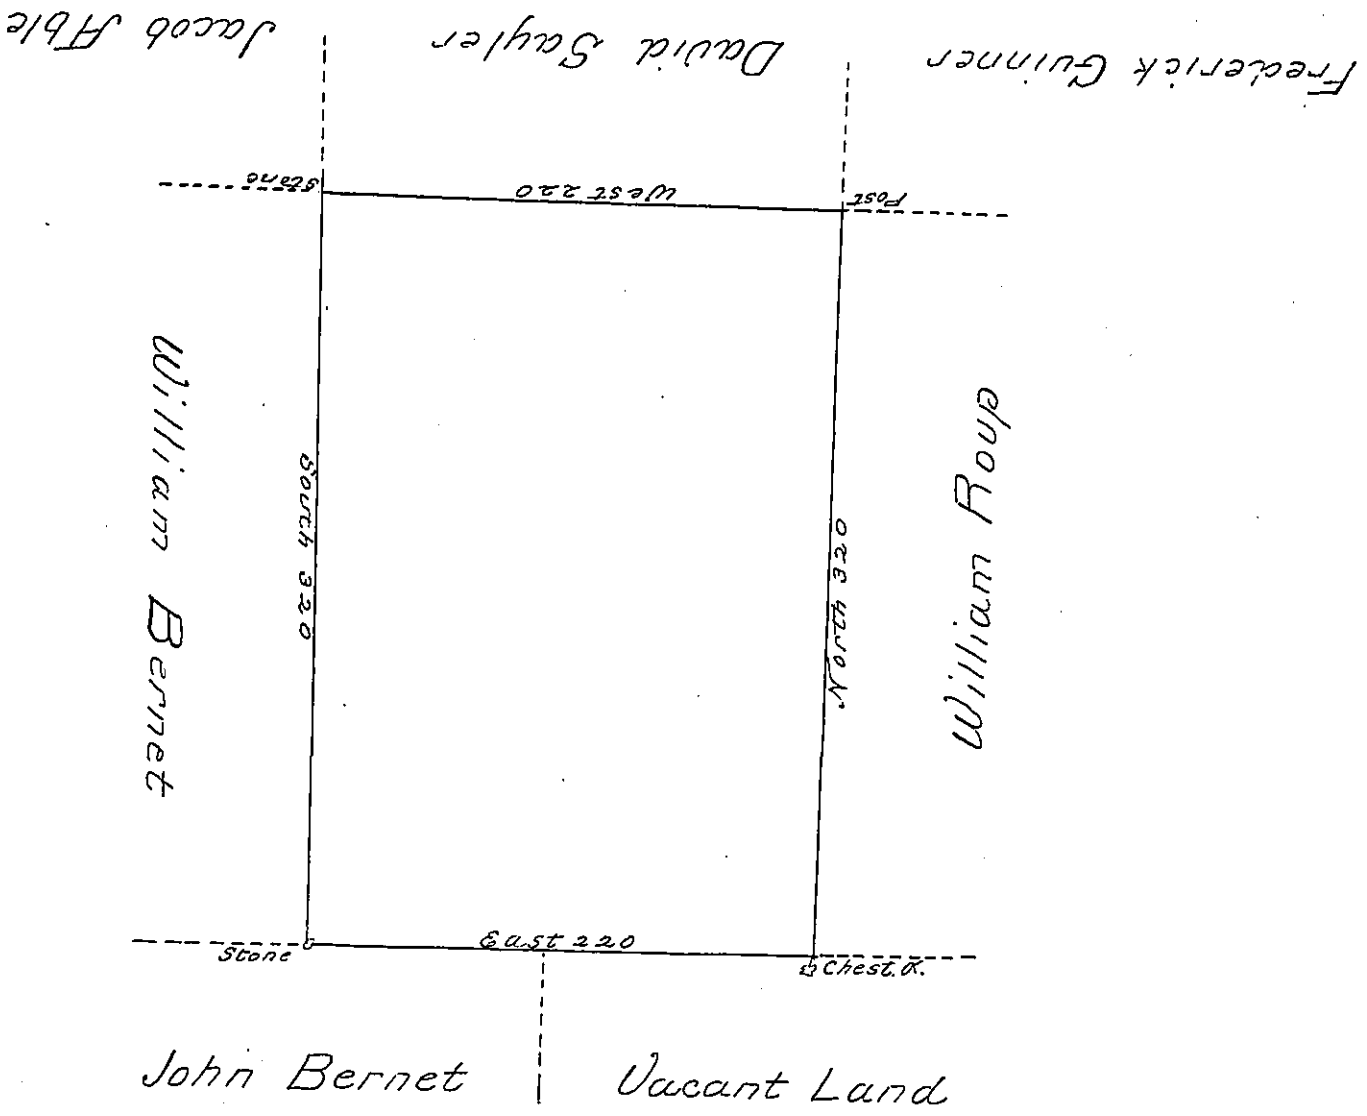 Jacob Able
David Sayler
Frederick Guinner
Stone
West 220
Post
William Bernet
South 320
North 320
William Roup
Stone
East 220
Chest. O.
John Bernet
Vacant Land